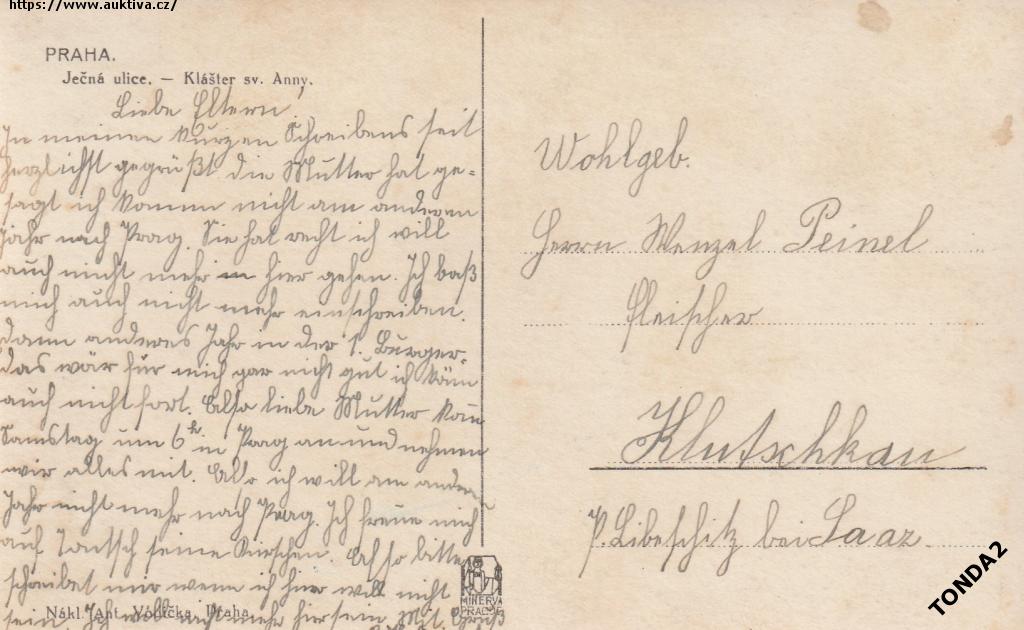 https://www.auktiva.cz/
PRAHA.
Ječná ulice. — Klášter sv. Anny.
Liebe Eltern!
In meinen kurzen Schreibens seit
herzlichst gegrüßt die Mutter hat ge-
sagt ich komm nicht am anderen
Jahr nach Prag. Sie hat recht ich will
auch nicht mehr hier gehen. Ich laß
mich auch nicht mehr einschreiben.
dann anderes Jahr in der 1. Bürger-
das wär für mich gar nicht gut ich kann
auch nicht fort. Also liebe Mutter kom
Samstag um 6h in Prag an und nehmen
wir alles mit. Also ich will am andern
Jahr nicht mehr nach Prag. Ich freue mich
auf seine Kirschen. Also bitte
schreibet mir wenn ich hier will nicht
sein. Ich will nicht mehr hir sein. Mit Gruß
Nákl. Ant. Vonička, Praha.
MINERVA
PRAGUE
Wohlgeb.
Herrn Wenzel Peinel
Fleischer
Klutschkau
P. Libeschitz bei Saaz.
TONDA2